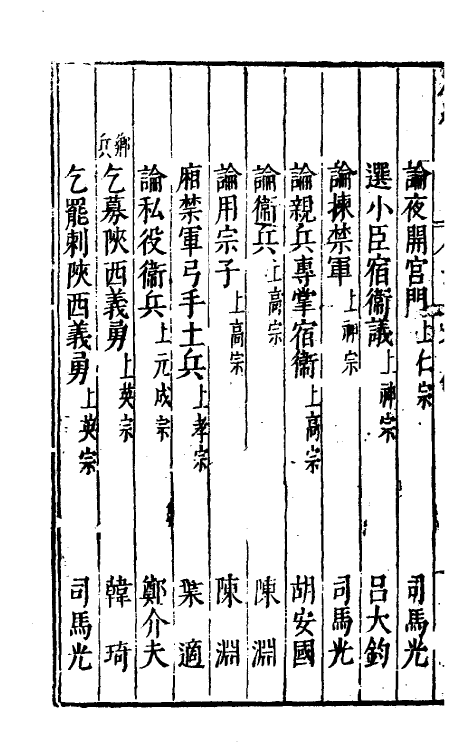 論夜開宮門 上仁宗 司馬光
選小臣宿衞議 上神宗 呂大鈞
論揀禁軍 上神宗 司馬光
論親兵專掌宿衞 上高宗 胡安國
論衞兵 上高宗 陳淵
論用宗子 上高宗 陳淵
廂禁軍弓手土兵 上孝宗 葉適
論私役衞兵 上元成宗 鄭介夫
鄉兵
乞募陝西義勇 上英宗 韓琦
乞罷刺陝西義勇 上英宗 司馬光